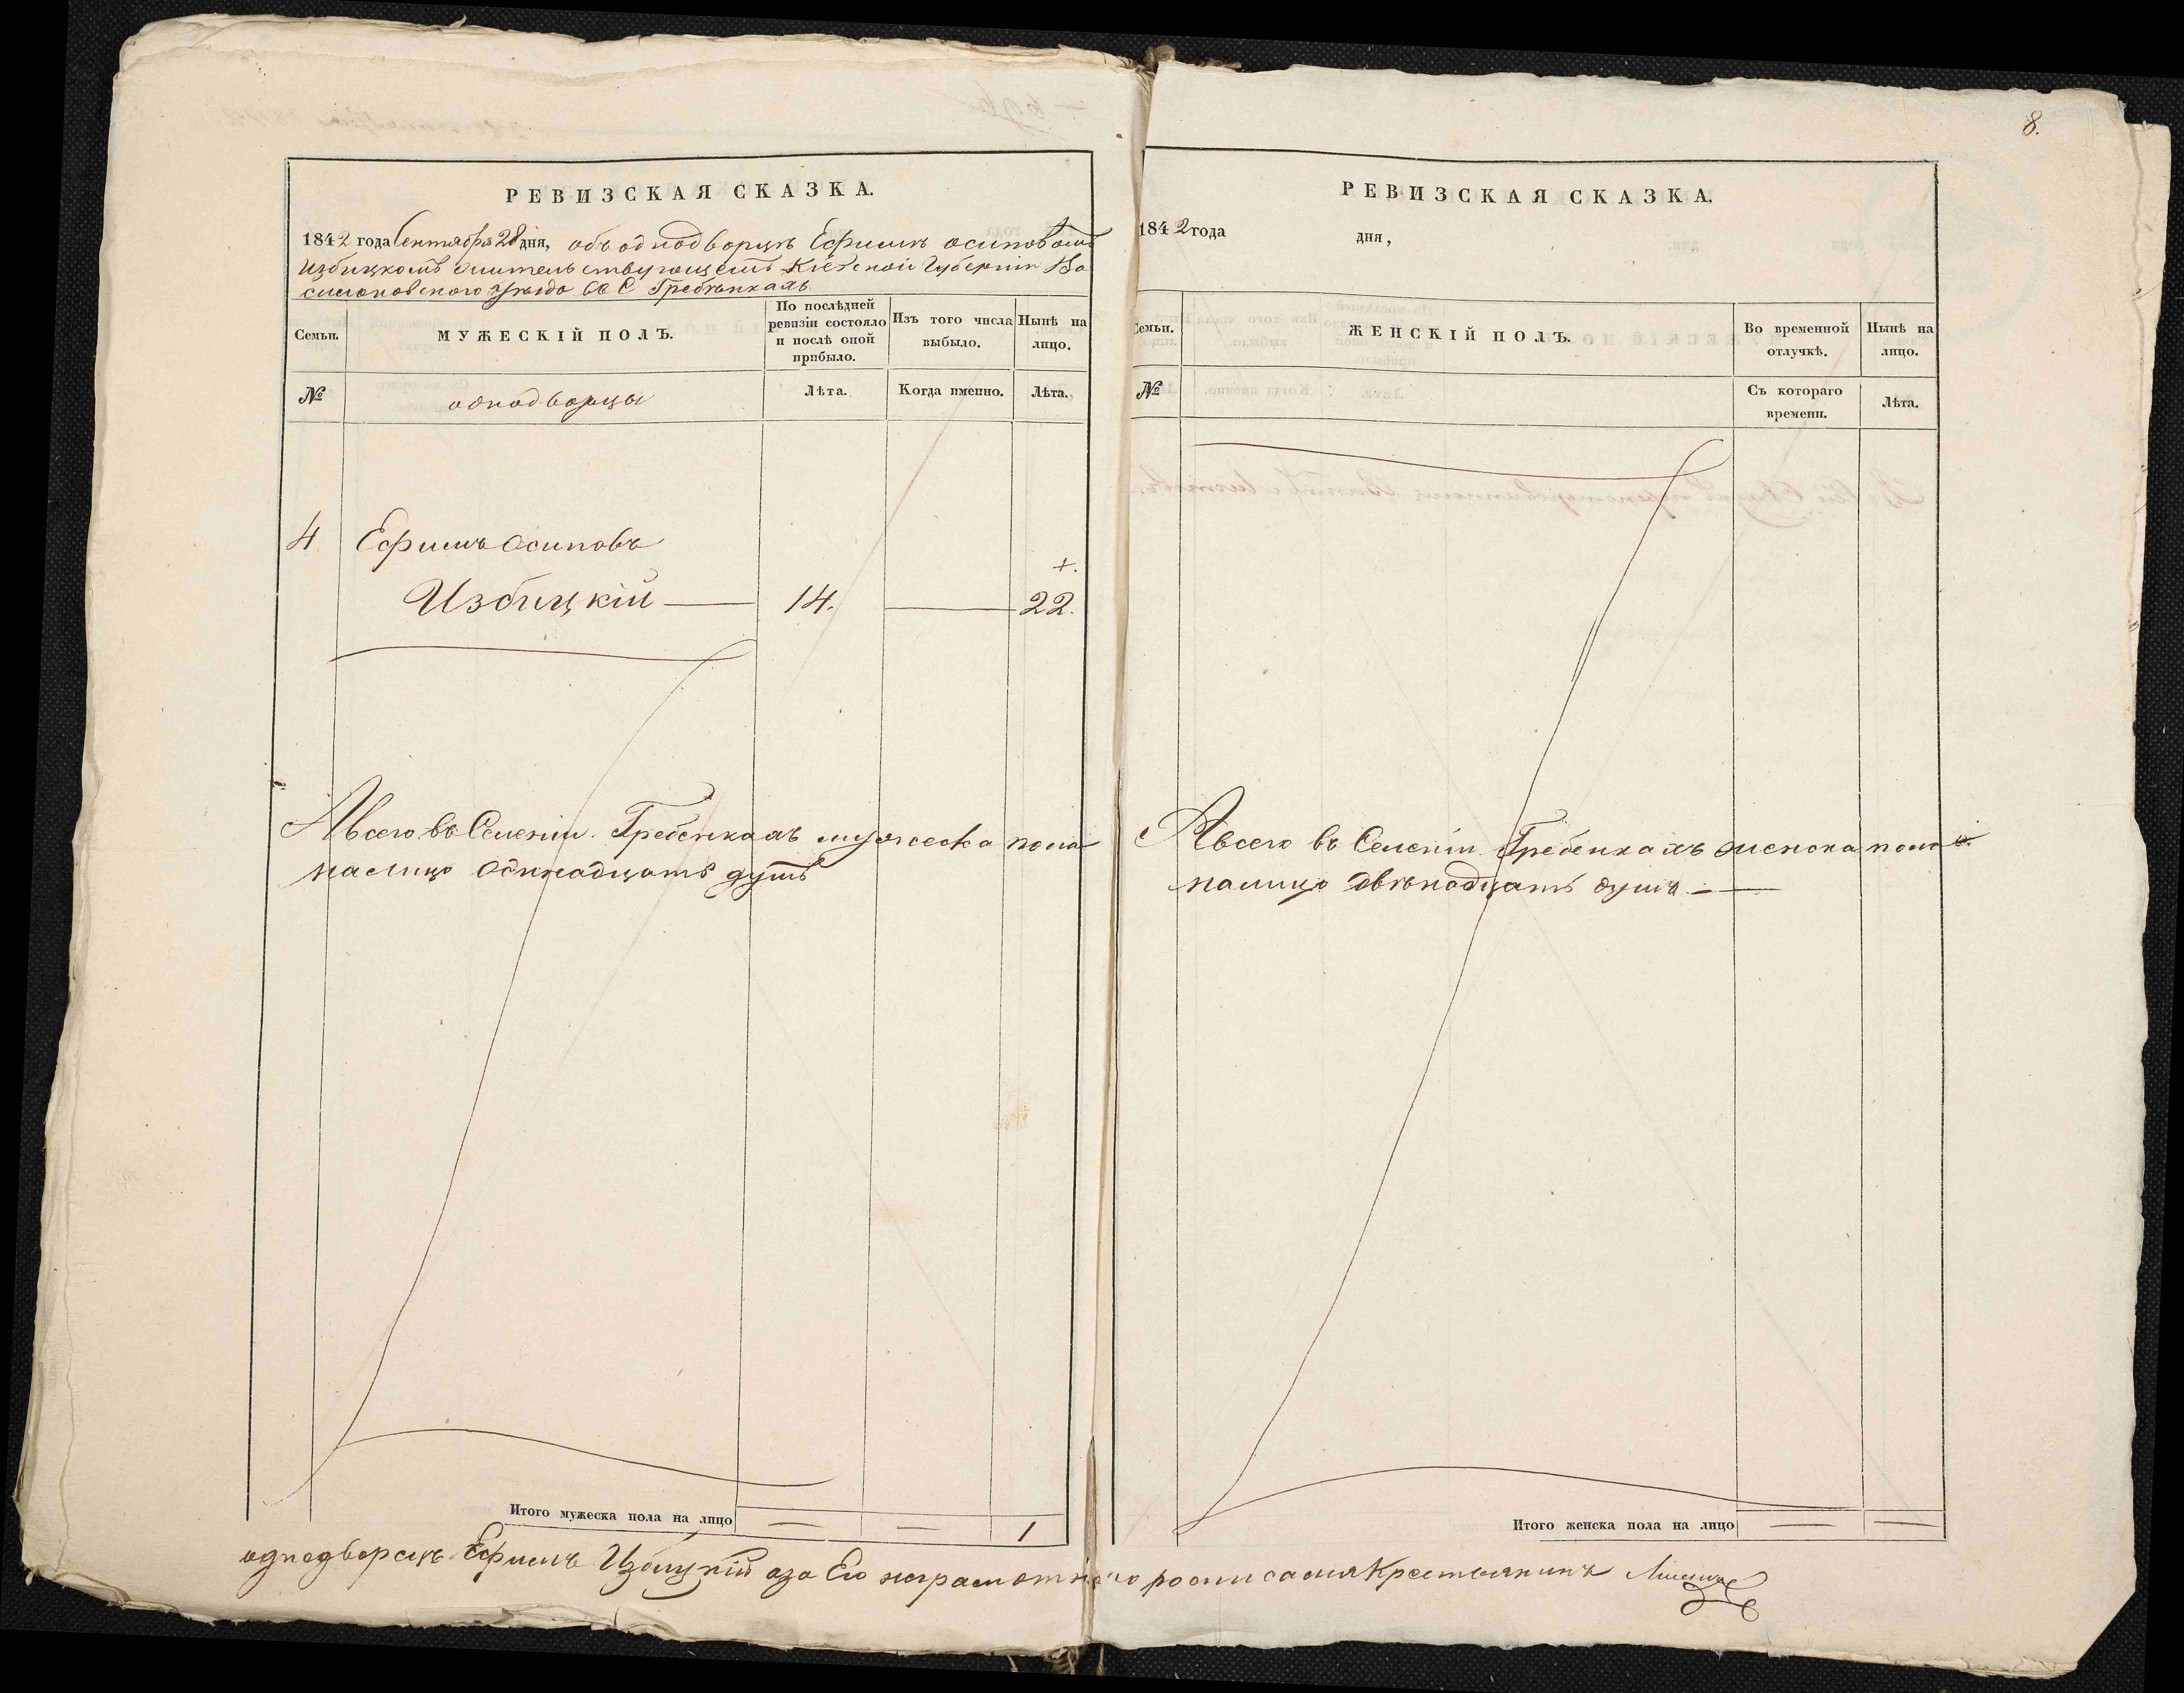 РЕВИЗСКАЯ СКАЗКА.
1842 года Сентября 28 дня, объ однодворцѣ Ефимѣ осиповомъ
Избицкомъ жительствующемъ Кіевской Губерніи Ва
сильковского Уѣзда въ С Гребѣнкахъ
Семьи.
МУЖЕСКІЙ ПОЛЪ.
По послѣдней ревизіи состояло и послѣ оной прибыло.
Изъ того числа выбыло.
Нынѣ на лицо.
№
однодворцы
Лѣта.
Когда именно.
Лѣта.
4 Ефимъ Осиповъ
+.
Избицкій — 14. — 22.
А всего въ Селеніи Гребенкахъ мужеска пола
налицо одинадцать душъ
Итого мужеска пола на лицо — — 1
8.
РЕВИЗСКАЯ СКАЗКА.
1842 года дня,
Семьи.
ЖЕНСКІЙ ПОЛЪ.
Во временной отлучкѣ.
Нынѣ на лицо.
№
Съ котораго времени.
Лѣта.
А всего въ Селеніи Гребенкахъ женска пола
налицо двѣнадцать душъ —
Итого женска пола на лицо — —
однодворецъ Ефимъ Избицкій аза Его неграмотного росписался Крестьянинъ